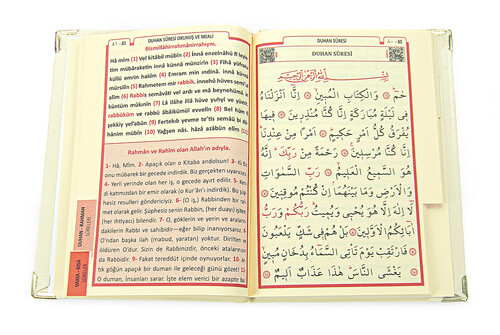 DUHAN SÛRESİ OKUNUŞ VE MEALİ
Bismillâhirrahmânirrahîym.
Hâ mîm (1) Vel kitâbil mübîn (2) İnnâ enzelnâhü fî leyle
tim mübâraketin innâ künnâ münzirîn (3) Fîhâ yüfraku
küllü emrin hakîm (4) Emram min ındinâ. innâ künnâ
mürsilîn (5) Rahmetem mir rabbik. innehû hüves semî'ul
alîm (6) Rabbis semâvâti vel ardı ve mâ beynehümâ. in
küntüm mûkınîn (7) Lâ ilâhe illâ hüve yuhyî ve yümît.
rabbüküm ve rabbü âbâikümül evvelîn (8) Bel hüm fî
şekkiy yel'abûn (9) Fertekıb yevme te'tis semâü bi du
hânim mübîn (10) Yağşen nâs. hâzâ azâbün elîm
Rahmân ve Rahîm olan Allah'ın adıyla.
1- Hâ, Mîm. 2- Apaçık olan o Kitaba andolsun! 3- Ki biz
onu mübarek bir gecede indirdik. Biz gerçekten uyarıcıyız.
4- Yerli yerinde olan her iş, o gecede ayırt edilir. 5-
katımızdan bir emir olarak (o Kur'an'ı indirdik). Biz
resul göndericileriz. 6- (O iş,) Rabbinden bir rah
met olarak gelir. Şüphesiz senin Rabbin, (her duayı) işiten
(her ihtiyacı) bilendir. 7- O, göklerin ve yerin ve
Rabbi ve sahibidir—eğer bilip inanıyorsanız. 8-
O'ndan başka ilah (mabud, yaratan) yoktur. Dirilten ve
öldüren O'dur. Sizin de Rabbinizdir, önceki atalarınızın
da Rabbidir. 9- Fakat tereddüt içinde oynuyorlar. 10-
tık göğün apaçık bir duman ile geleceği günü gözet! 11-
O duman, insanları sarar. İşte elem verici bir azaptır bu
DUHAN - RAHMAN
SÛRELERİ
VAKIA - RIDA
DUHAN SÛRESİ
DUHAN SÛRESİ
بِسْمِ اللّٰهِ الرَّحْمٰنِ الرَّحِيمِ
حٰمٓ وَالْكِتَابِ الْمُبِينِ اِنَّٓا اَنْزَلْنَاهُ
فِى لَيْلَةٍ مُبَارَكَةٍ اِنَّا كُنَّا مُنْذِرِينَ فِيهَا
يُفْرَقُ كُلُّ اَمْرٍ حَكِيمٍ اَمْرًا مِنْ عِنْدِنَا
اِنَّا كُنَّا مُرْسِلِينَ رَحْمَةً مِنْ رَبِّكَ اِنَّهُ
هُوَ السَّمِيعُ الْعَلِيمُ رَبِّ السَّمٰوَاتِ
وَالْاَرْضِ وَمَا بَيْنَهُمَا اِنْ كُنْتُمْ مُوقِنِينَ
لَٓا اِلٰهَ اِلَّا هُوَ يُحْيِى وَيُمِيتُ رَبُّكُمْ وَرَبُّ
اٰبَٓائِكُمُ الْاَوَّلِينَ بَلْ هُمْ فِى شَكٍّ يَلْعَبُونَ
فَارْتَقِبْ يَوْمَ تَاْتِى السَّمَٓاءُ بِدُخَانٍ مُبِينٍ
يَغْشَى النَّاسَ هٰذَا عَذَابٌ اَلِيمٌ